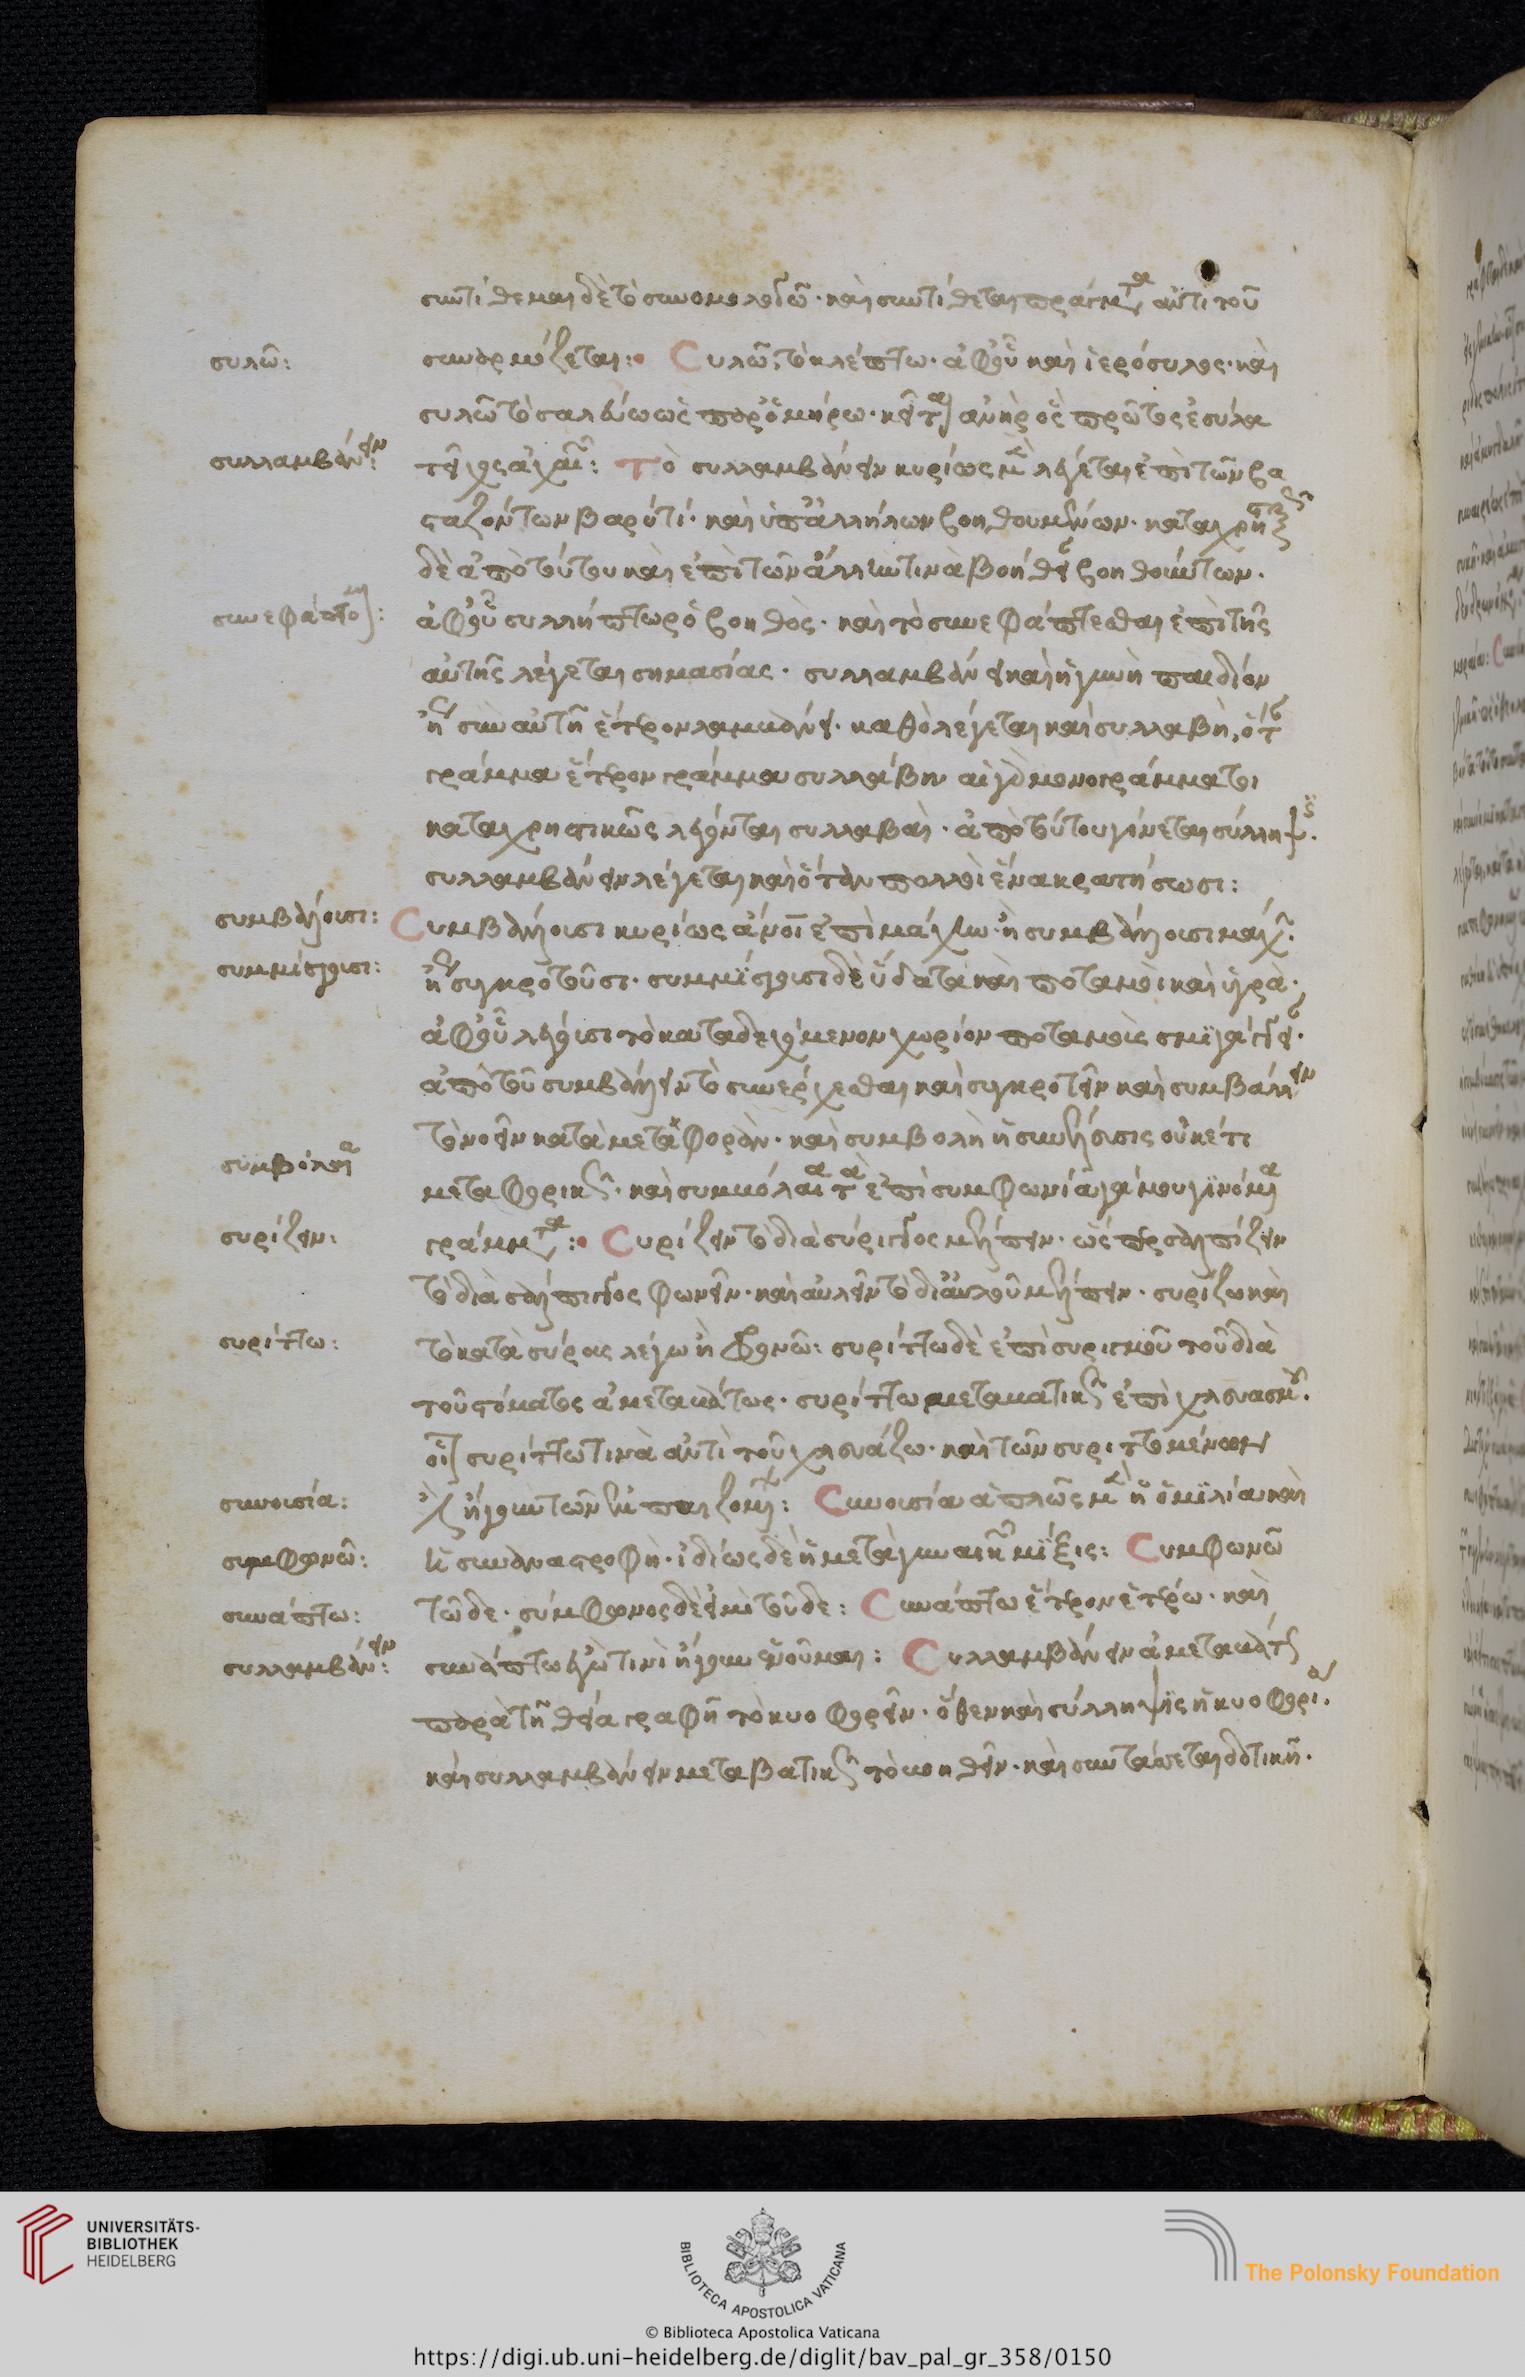 συντίθεμαι δὲ τὸ συνομολογῶ· καὶ συντίθεται πράγματα ἀντὶ τοῦ
συλῶ: συναρμόζεται: Συλῶ, τὸ κλέπτω· ἀφ' οὗ καὶ ἱερόσυλος· καὶ
συλῶ τὸ σαλεύω ὡς παρ' ὁμήρω· ἀνὴρ ὃς πρῶτος ἐσύλα
συλλαμβάνειν: Τὸ συλλαμβάνειν κυρίως μὲν λέγεται ἐπὶ τῶν βα
σταζόντων βαρύ τι· καὶ ὑπ' ἀλλήλων βοηθουμένων· καταχρηστικῶς
δὲ ἀπὸ τούτου καὶ ἐπὶ τῶν ἄλλην τινὰ βοήθειαν βοηθούντων·
συνεφάπτομαι: ἀφ' οὗ συλλήπτωρ ὁ βοηθός· καὶ τὸ συνεφάπτεσθαι ἐπὶ τῆς
αὐτῆς λέγεται σημασίας· συλλαμβάνει καὶ ἡ γυνὴ παιδίον
ἤγουν σὺν αὐτῆ ἕτερον λαμβάνει· καθὸ λέγεται καὶ συλλαβὴ, ὅτε
γράμμα ἕτερον γράμμα συλλάβη· αἱ γὰρ μονογράμματοι
καταχρηστικῶς λέγονται συλλαβαὶ· ἀπὸ τούτου γίνεται σύλληψις.
συλλαμβάνειν λέγεται καὶ ὅταν πολλοὶ ἕνα κρατήσωσι:
συμβάλλουσι: Συμβάλλουσι κυρίως ἄνοι ἐπὶ μάχην· ἢ συμβάλλουσι μάχην
συμμίσγουσι: ἤγουν συγκροτοῦσι· συμμίσγουσι δὲ ὕδατα καὶ ποταμοὶ καὶ ὑγρὰ·
ἀφ' οὗ λέγουσι τὸ καταδεχόμενον χωρίον ποταμοὺς σμιγάγγεια·
ἀπὸ τοῦ συμβάλλειν τὸ συνέρχεσθαι καὶ συγκροτεῖν καὶ συμβάλλειν
τὸ νοεῖν κατὰ μεταφορὰν· καὶ συμβολὴ ἡ συνέλευσις οὐκέτι
συμβόλαια: μεταφορικῶς· καὶ συμβόλαια τὰ ἐπὶ συμφωνία γάμου γινόμενα
συρίζειν: γράμματα: Συρίζειν τὸ διὰ σύριγγος μέλπειν· ὥσπερ σαλπίζειν
τὸ διὰ σάλπιγγος φωνεῖν· καὶ αὐλεῖν τὸ δι' αὐλοῦ μέλπειν· συρίζω καὶ
συρίττω: τὸ κατὰ σύρους λέγω ἢ φρονῶ: συρίττω δὲ ἐπὶ συριγμοῦ τοῦ διὰ
τοῦ στόματος ἀμεταβάτως· συρίττω μεταβατικῶς ἐπὶ χλευασμοῦ.
οἷον συρίττω τινὰ ἀντὶ τοῦ χλευάζω· καὶ τῶν συριττομένων
συνουσία: ἤγουν τῶν ἐμπαιζομένων: Συνουσία ἁπλῶς μὲν ἡ ὁμιλία καὶ
συμφωνῶ: ἡ συναναστροφὴ· ἰδίως δὲ ἡ μετὰ γυναικῶν μίξις: Συμφωνῶ
συνάπτω: τῶδε· σύμφωνος δὲ εἰμὶ τοῦδε: Συνάπτω ἕτερον ἑτέρω· καὶ
συλλαμβάνειν: συνάπτω ἐγώ τινι ἤγουν ἑνοῦμαι: Συλλαμβάνειν ἀμεταβάτως
παρὰ τῆ θεία γραφῆ τὸ κυοφορεῖν· ὅθεν καὶ σύλληψις ἡ κυοφορία.
καὶ συλλαμβάνειν μεταβατικῶς τὸ βοηθεῖν· καὶ συντάσσεται δοτικῆ.
UNIVERSITÄTS-
BIBLIOTHEK
HEIDELBERG
BIBLIOTECA APOSTOLICA VATICANA
The Polonsky Foundation
© Biblioteca Apostolica Vaticana
https://digi.ub.uni-heidelberg.de/diglit/bav_pal_gr_358/0150